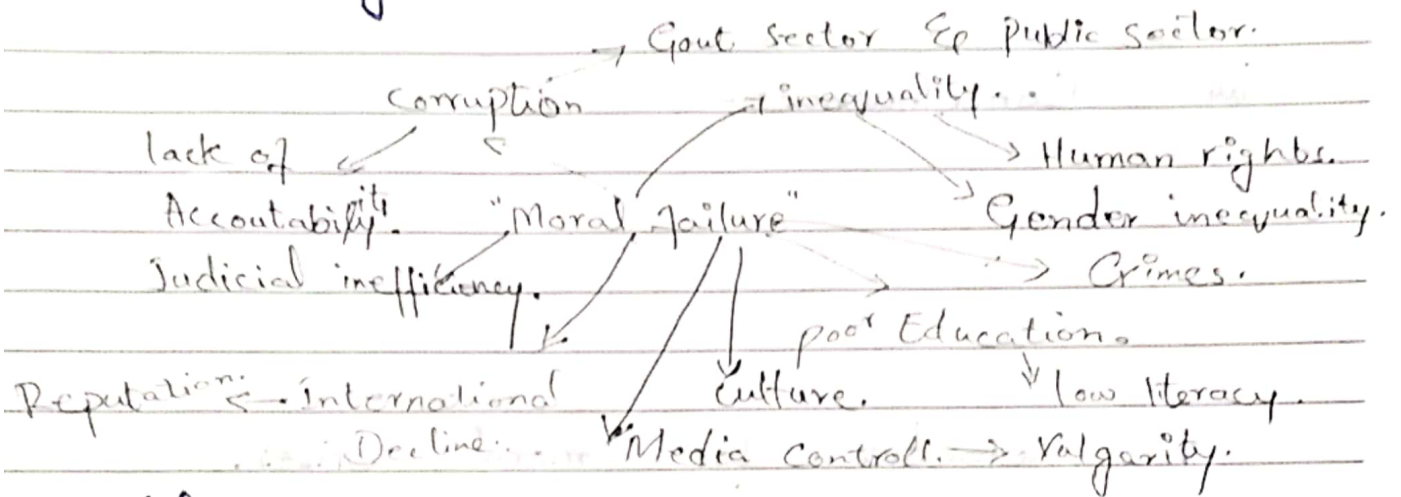 Govt sector & public sector.
Corruption
inequality.
lack of
Accoutability.
Human rights.
"Moral failure"
Gender inequality.
Judicial inefficiency.
Crimes.
poor Education.
Reputation. International
Decline.
Culture.
low literacy.
Media Controll. Vulgarity.